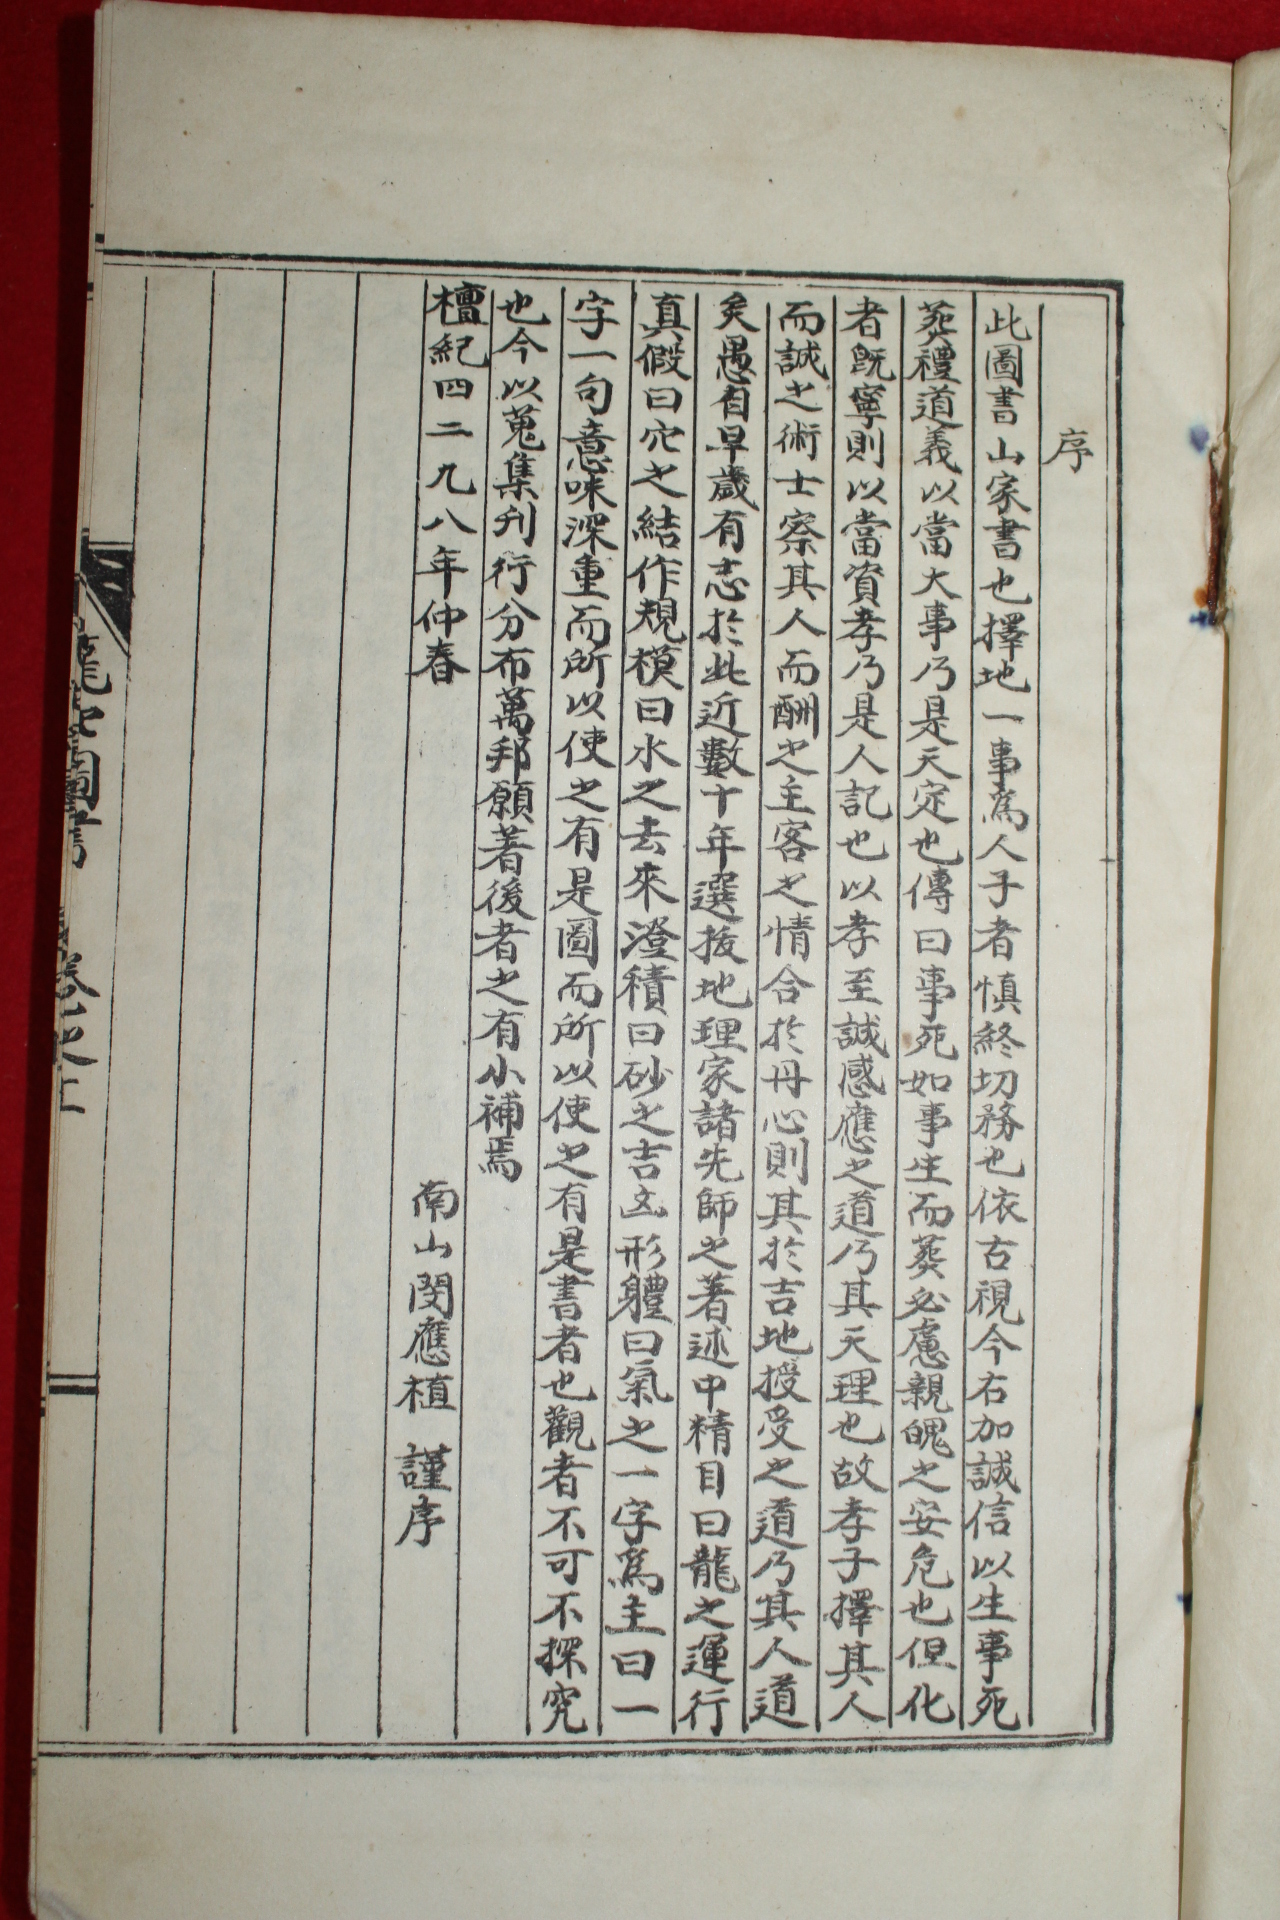 序
此圖書山家書也擇地一事爲人子者慎終切務也依古視今右加誠信以生事死
葬禮道義以當大事乃是天定也傳曰事死如事生而葬必慮親魄之安危也但化
者旣寧則以當資孝乃是人記也以孝至誠感應之道乃其天理也故孝子擇其人
而誠之術士察其人而酬之主客之情合於丹心則其於吉地授受之道乃其人道
矣愚自早歲有志於此近數十年選拔地理家諸先師之著述中精目曰龍之運行
真假曰穴之結作規模曰水之去來澄積曰砂之吉凶形軆曰氣之一字爲主曰一
字一句意味深重而所以使之有是圖而所以使之有是書者也觀者不可不探究
也今以蒐集刋行分布萬邦願著後者之有小補焉
檀紀四二九八年仲春
南山閔應植 謹序
圖書 卷之上